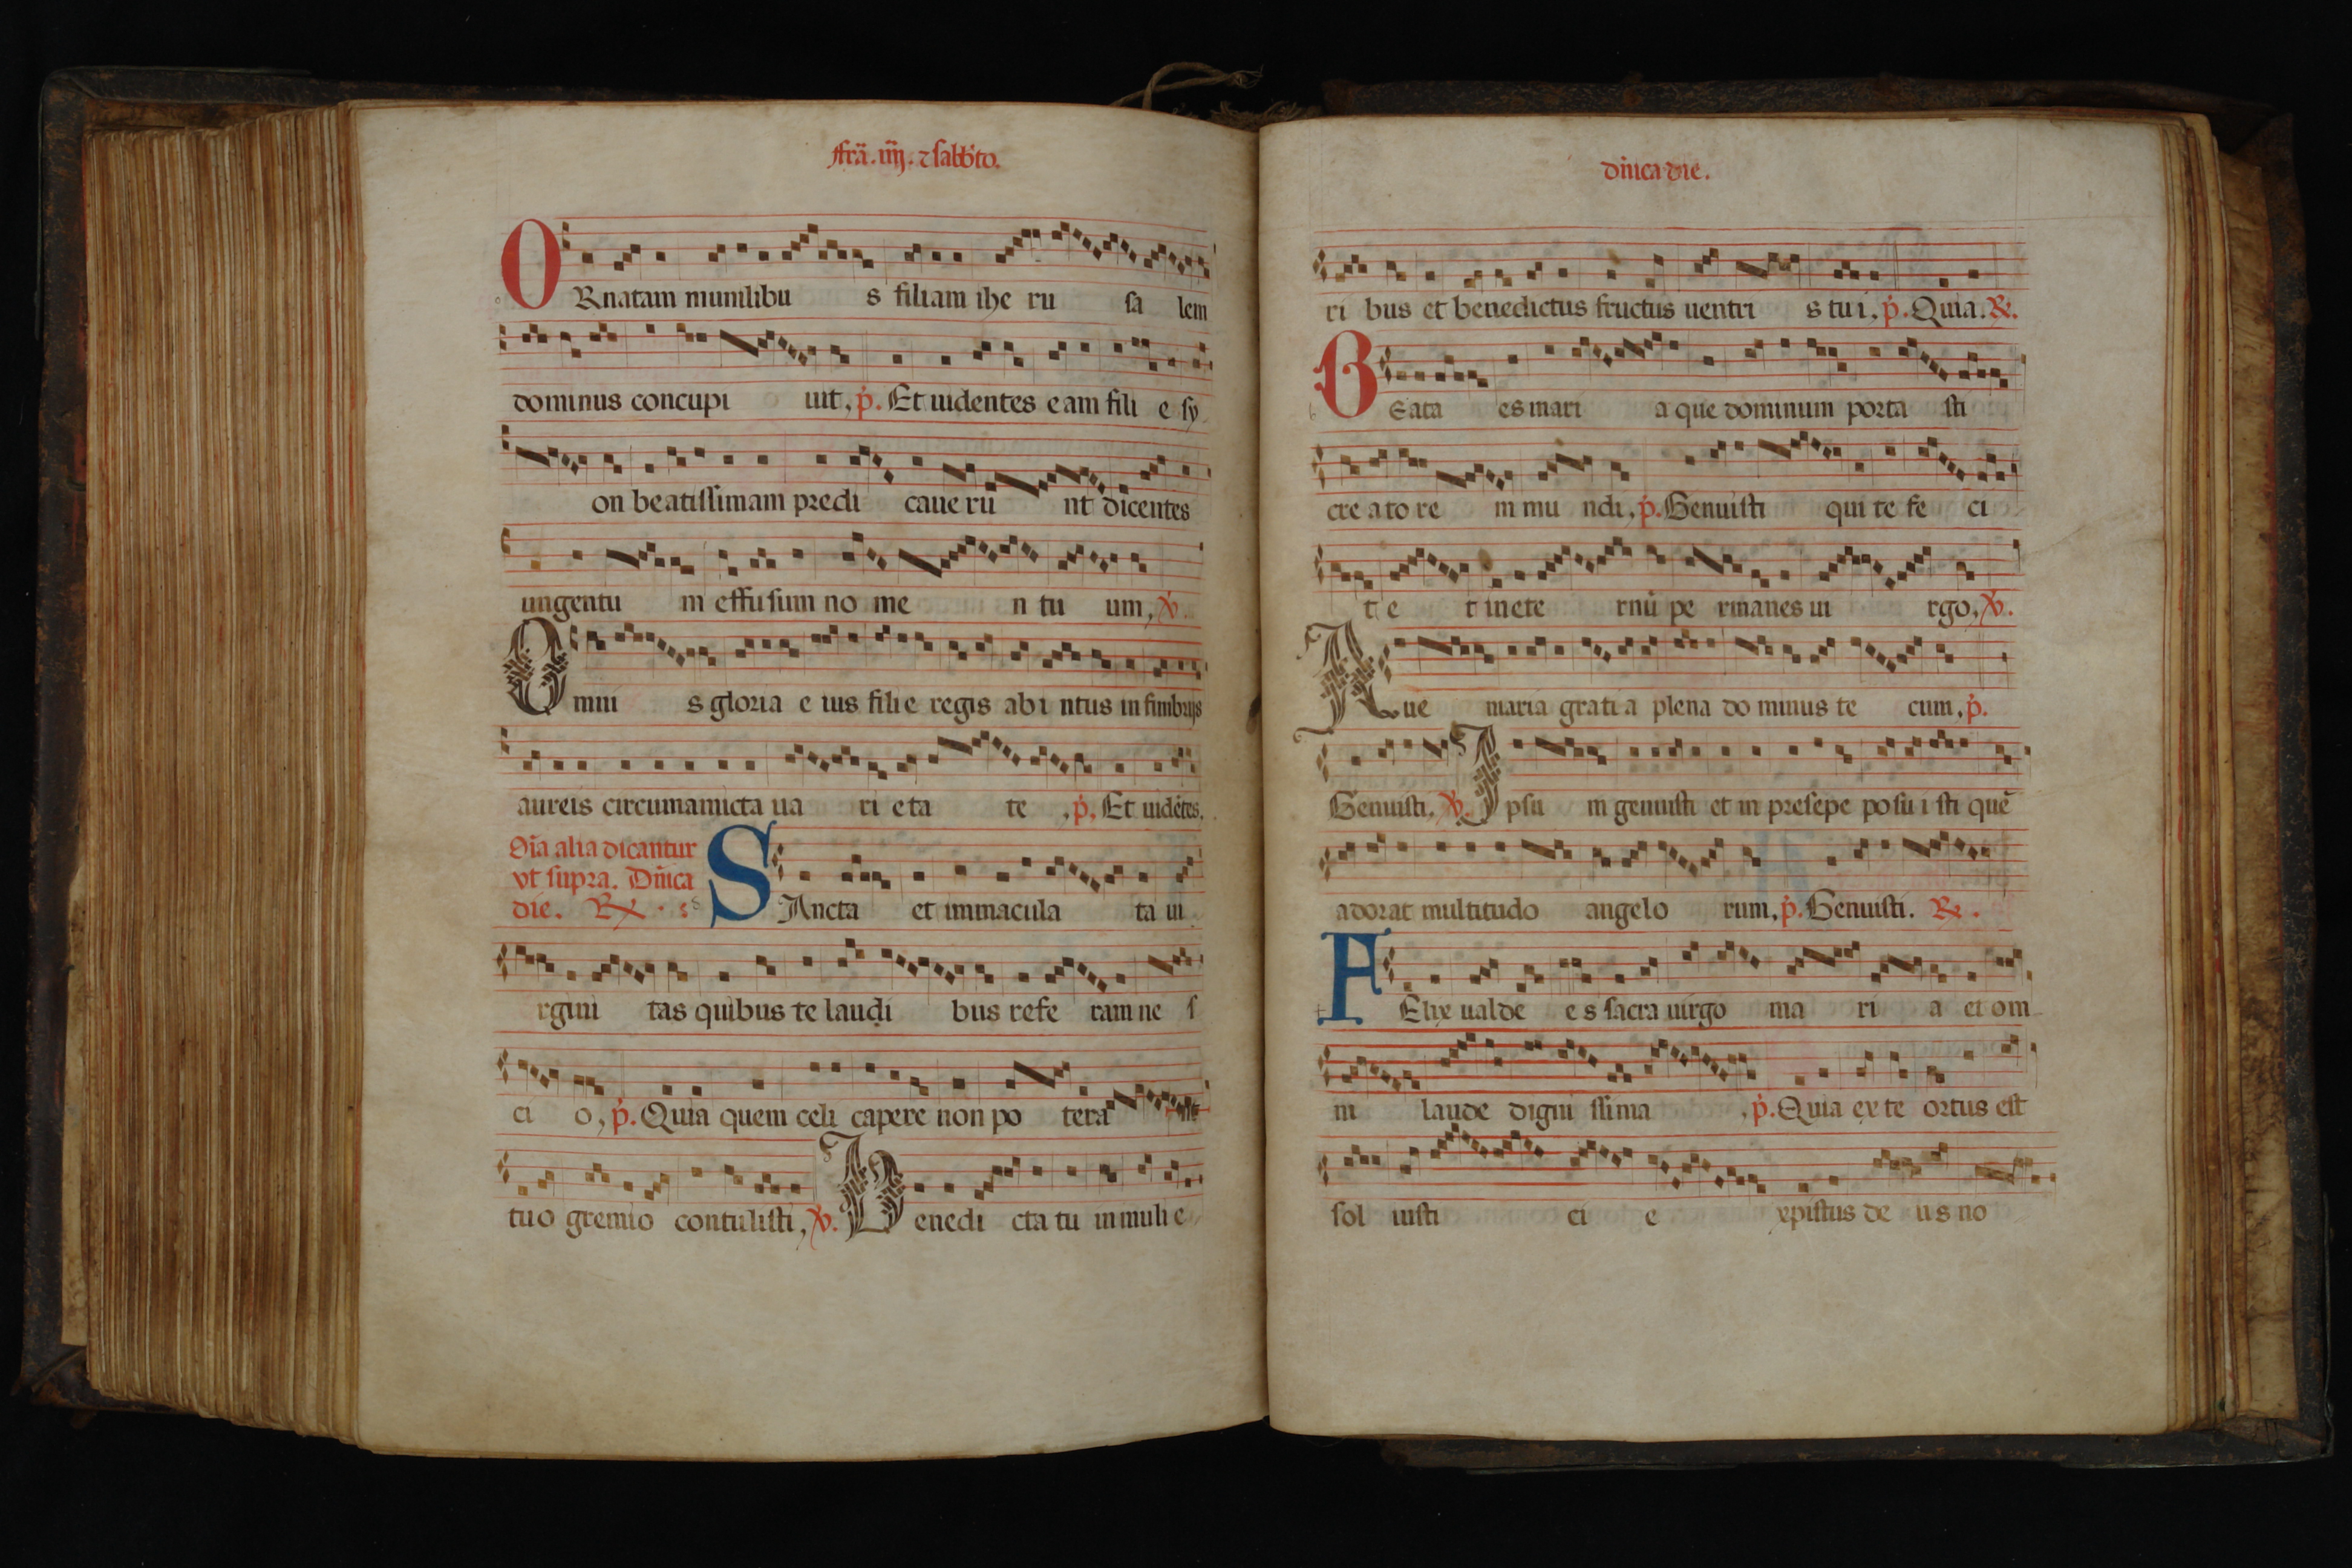 ffrā. iiij. ⁊ sabb'to.
ORnatam munilibu s filiam ihe ru sa lem
dominus concupi uit, p̄. Et uidentes eam fili e sy
on beatissimam predi caue rū nt dicentes
ungentu m effusum no me n tu um, ℣.
Omni s gloria e ius filie regis abi ntus in fimbrijs
aureis circumamicta ua ri eta te, p̄. Et uidētes.
Oīa alia dicantur
vt supra. Dn̄ica
die. ℟.
SAncta et immacula ta ui
rgini tas quibus te laudi bus refe ram ne s
ci o, p̄. Quia quem celi capere non po tera nt
tuo gremio contulisti, ℣. Benedi cta tu in muli e
dn̄ica die.
ri bus et benedictus fructus uentri s tui, p̄. Quia. ℟.
BEata es mari a que dominum porta sti
cre ato re m mu ndi, p̄. Genuisti qui te fe ci
t e t in ete rnū pe rmanes ui rgo, ℣.
Aue maria grati a plena do minus te cum, p̄.
Genuisti, ℣. Ipsu m genuisti et in presepe posu i sti quē
adorat multitudo angelo rum, p̄. Genuisti. ℟.
FElix ualde e s sacra uirgo ma ri a et om
ni laude digni ssima, p̄. Quia ex te ortus est
sol iusti ci e xpistus de us no